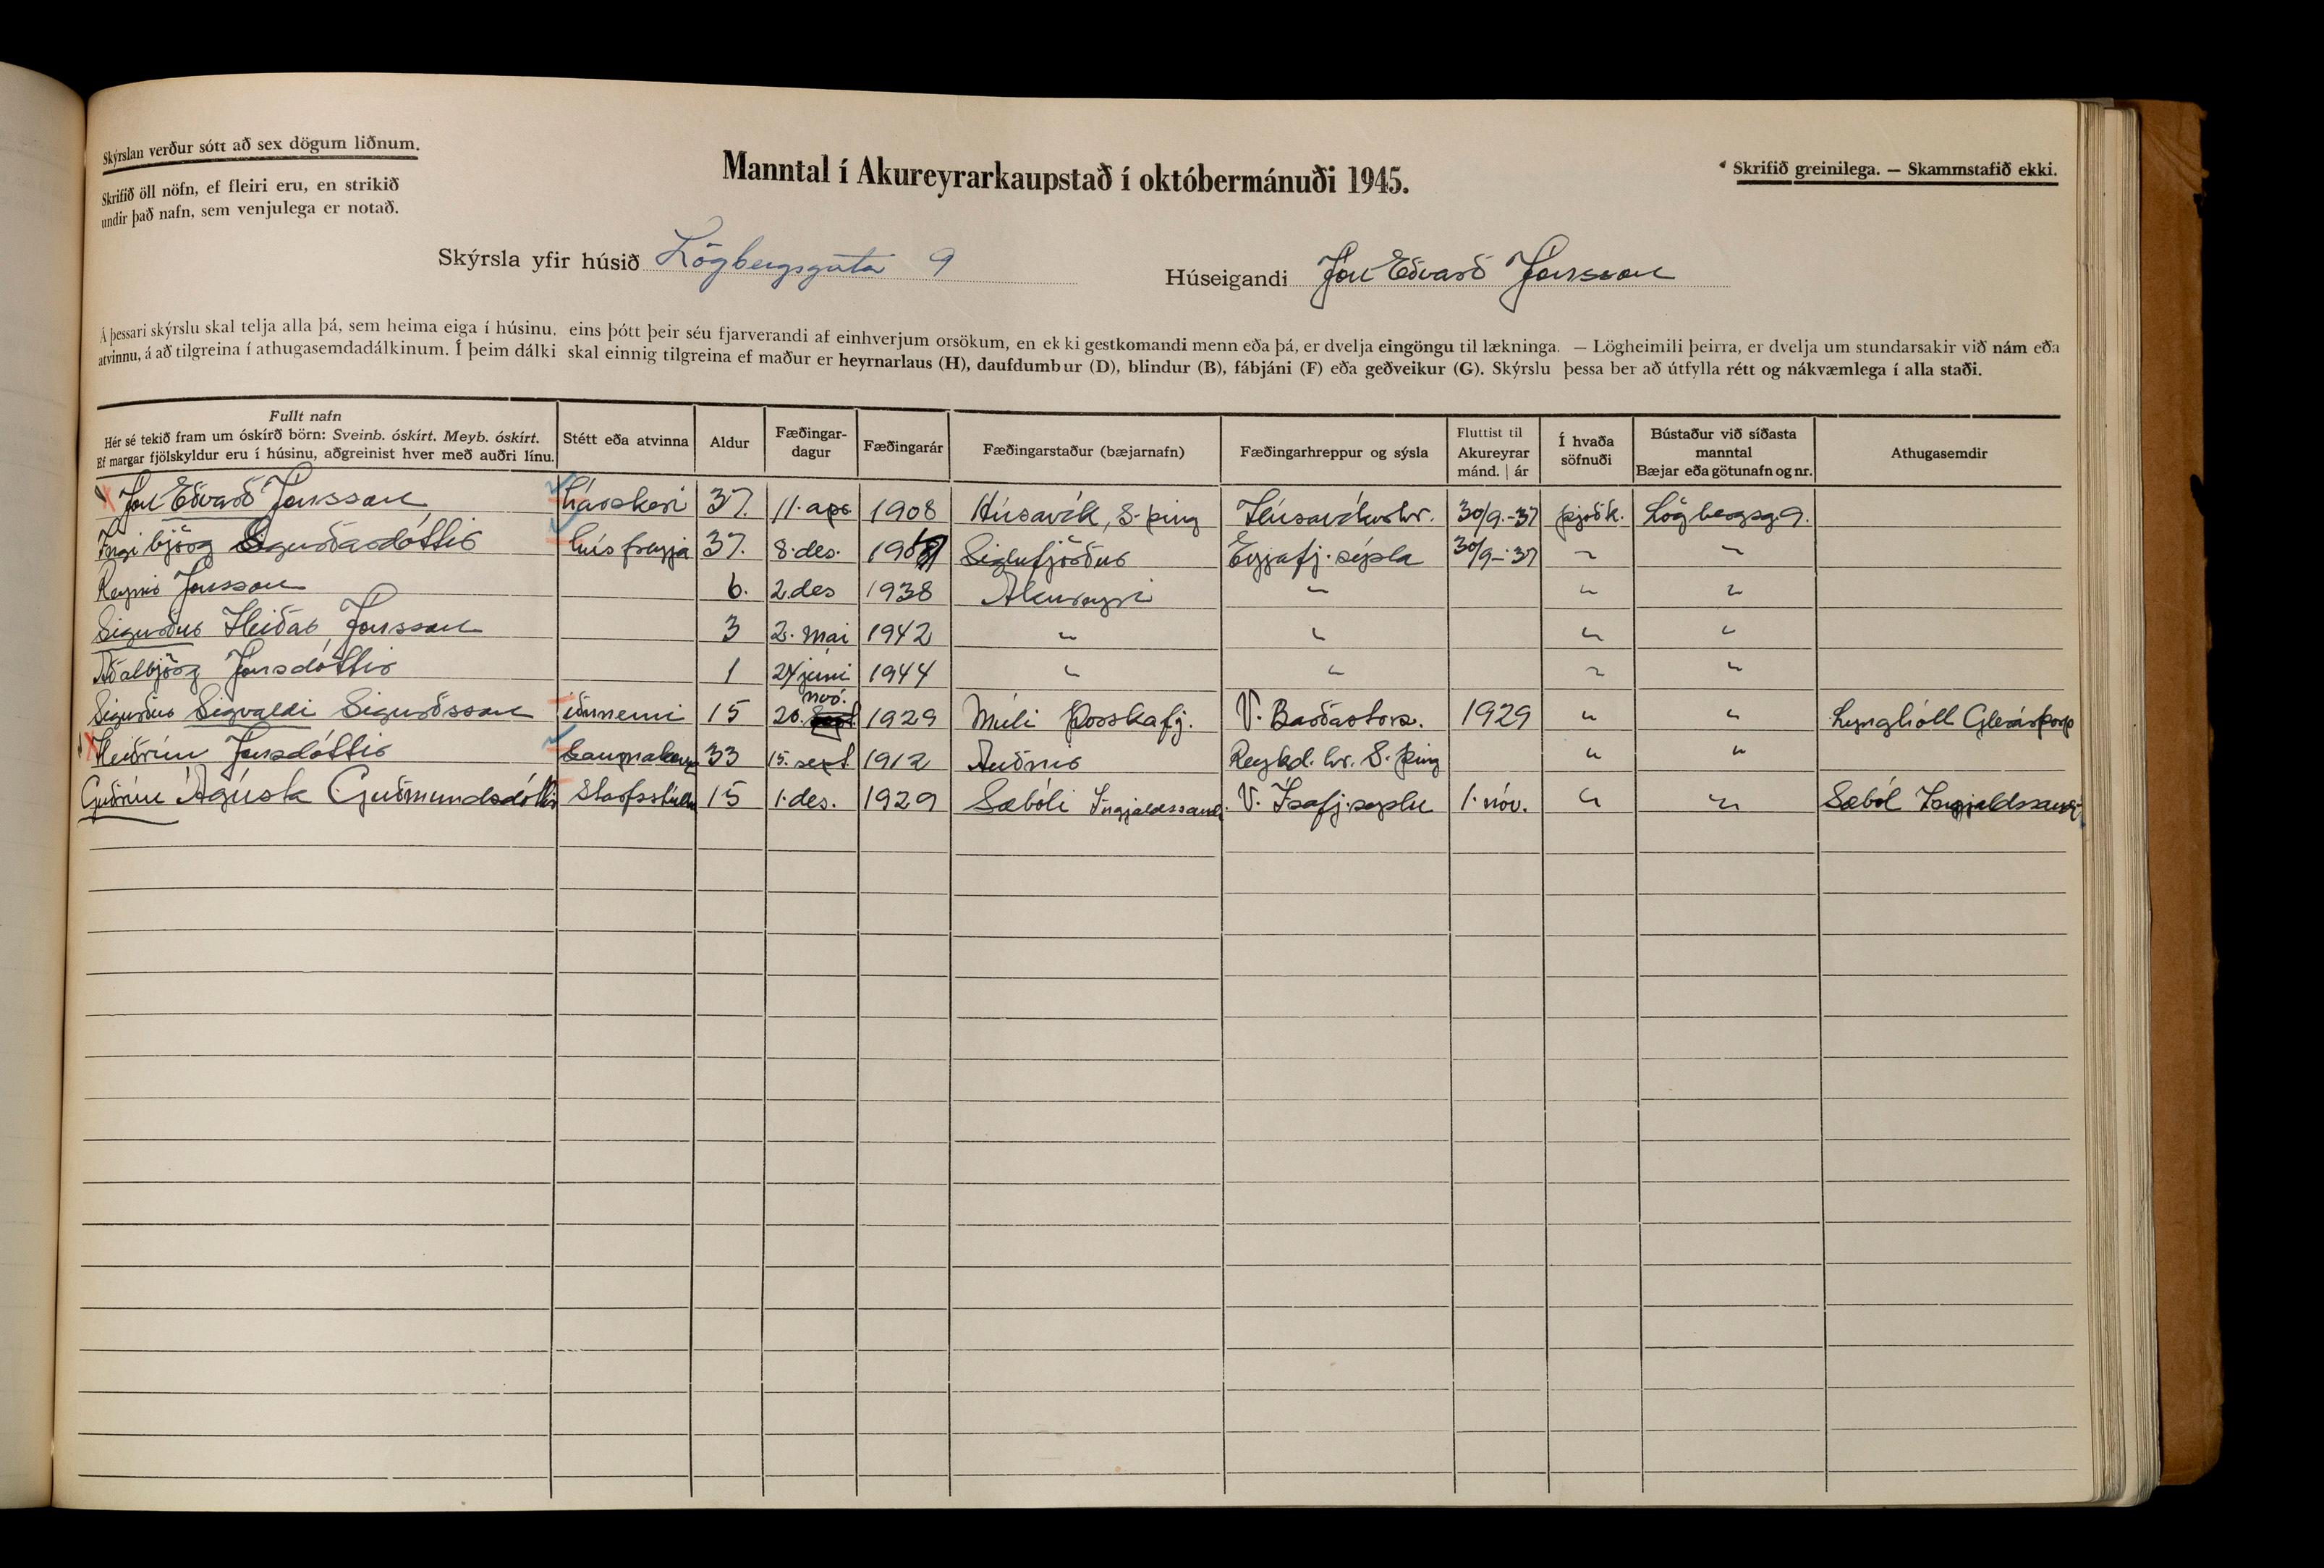 Skýrslan verður sótt að sex dögum liðnum.
Skrifið öll nöfn, ef fleiri eru, en strikið
undir það nafn, sem venjulega er notað.
Manntal í Akureyrarkaupstað í októbermánuði 1945.
Skrifið greinilega. — Skammstafið ekki.
Skýrsla yfir húsið Lögbergsgata 9
Húseigandi Jón Eðvarð Jónsson
Á þessari skýrslu skal telja alla þá, sem heima eiga í húsinu, eins þótt þeir séu fjarverandi af einhverjum orsökum, en ekki gestkomandi menn eða þá, er dvelja eingöngu til lækninga. — Lögheimili þeirra, er dvelja um stundarsakir við nám eða
atvinnu, á að tilgreina í athugasemdadálkinum. Í þeim dálki skal einnig tilgreina ef maður er heyrnarlaus (H), daufdumbur (D), blindur (B), fábjáni (F) eða geðveikur (G). Skýrslu þessa ber að útfylla rétt og nákvæmlega í alla staði.
Fullt nafn
Hér sé tekið fram um óskírð börn: Sveinb. óskírt. Meyb. óskírt.
Ef margar fjölskyldur eru í húsinu, aðgreinist hver með auðri línu.
Stétt eða atvinna
Aldur
Fæðingar-
dagur
Fæðingarár
Fæðingarstaður (bæjarnafn)
Fæðingarhreppur og sýsla
Fluttist til
Akureyrar
mánd. | ár
Í hvaða
söfnuði
Bústaður við síðasta
manntal
Bæjar eða götunafn og nr.
Athugasemdir
Jón Eðvarð Jónsson hárskeri 37. 11. apr 1908 Húsavík, S-þing Húsavíkurhr. 30/9.-37 þjóðk. Lögbergsg. 9.
Ingibjörg Sigurðardóttir húsfreyja 37. 8. des. Siglufjörður Eyjafj. sýsla 30/9-'37 " "
Reynir Jónsson 6. 2. des 1938 Akureyri " " "
Sigurður Heiðar Jónsson 3 2. maí 1942 " " " "
Aðalbjörg Jónsdóttir 1 24 júní 1944 " " " "
nóv.
Sigurður Sigvaldi Sigurðsson iðnnemi 15 20. 1929 Múli Þorskafj. V. Barðastr. 1929 " " Lynghóll Glerárþorp
Heiðrún Jónsdóttir saumakona 33 15. sept 1912 Auðnir Reykd. hr. S-þing " "
Guðrún Ágústa Guðmundsdóttir Starfsstúlka 15 1. des. 1929 Sæbóli Ingjaldssandi V. Ísafj. sýslu 1. nóv. " " Sæból Ingjaldssandi